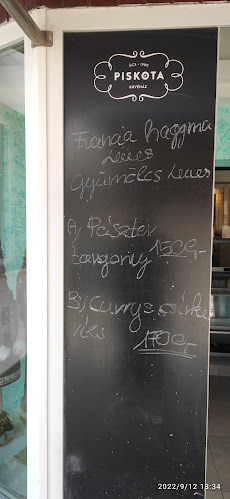 PISKÓTA
KÁVÉHÁZ
Francia hagyma
leves
Gyümölcs leves
A, Pásztor
tarhonya 1500,-
B, Currys csirke
rizs 1700,-
2022/9/12 13:34